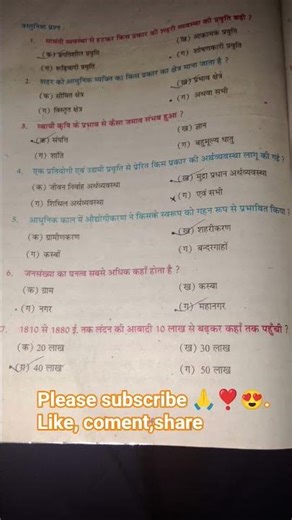 वस्तुनिष्ठ प्रश्न :
1. सामंती व्यवस्था से हटकर किस प्रकार की शहरी व्यवस्था की प्रवृति बढ़ी ?
(क) प्रगतिशील प्रवृति (ख) आक्रामक प्रवृति
(ग) रूढ़िवादी प्रवृति (घ) शोषणकारी प्रवृति
2. शहर को आधुनिक व्यक्ति का किस प्रकार का क्षेत्र माना जाता है ?
(क) सीमित क्षेत्र (ख) प्रभाव क्षेत्र
(ग) विस्तृत क्षेत्र (घ) उपर्युक्त सभी
3. स्थायी कृषि के प्रभाव से कैसा जमाव संभव हुआ ?
(क) संपत्ति (ख) ज्ञान
(ग) शांति (ग) बहुमूल्य धातु
4. एक प्रतियोगी एवं उद्यमी प्रवृति से प्रेरित किस प्रकार की अर्थव्यवस्था लागू की गई ?
(क) जीवन निर्वाह अर्थव्यवस्था (ख) मुद्रा प्रधान अर्थव्यवस्था
(ग) शिथिल अर्थव्यवस्था (ग) एवं सभी
5. आधुनिक काल में औद्योगीकरण ने किसके स्वरूप को गहन रूप से प्रभावित किया ?
(क) ग्रामीणकरण (ख) शहरीकरण
(ग) कस्बों (ग) बन्दरगाहों
6. जनसंख्या का घनत्व सबसे अधिक कहाँ होता है ?
(क) ग्राम (ख) कस्बा
(ग) नगर (ग) महानगर
7. 1810 से 1880 ई. तक लंदन की आबादी 10 लाख से बढ़कर कहाँ तक पहुँची ?
(क) 20 लाख (ख) 30 लाख
(ग) 40 लाख (ग) 50 लाख
Please subscribe 🙏❣️😍.
Like, coment,share